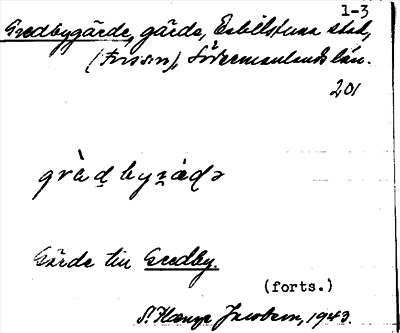 1-3
Gredbygärde, gärde, Eskilstuna stad,
(Fors sn), Södermanlands län.
201
Gärde till Gredby.
(forts.)
Jacobson, 1943.